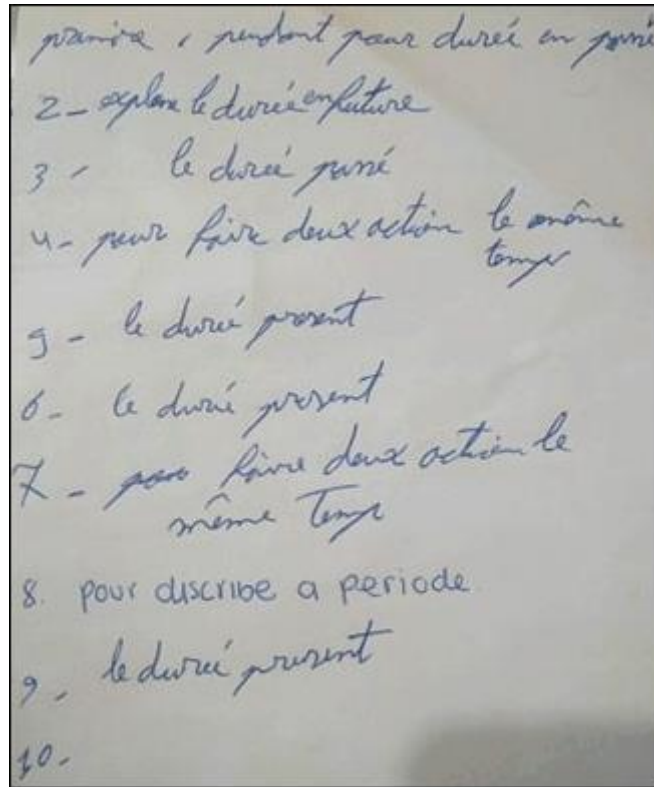 première, pendant pour dureé en passé
2- explane le durée en future
3- le dureé passé
4- pour faire deux action le même
temps
5- le dureé present
6- le durié présent
7- pour faire deux action le
même Temps
8. pour discribe a periode
9, le dureé present
10-